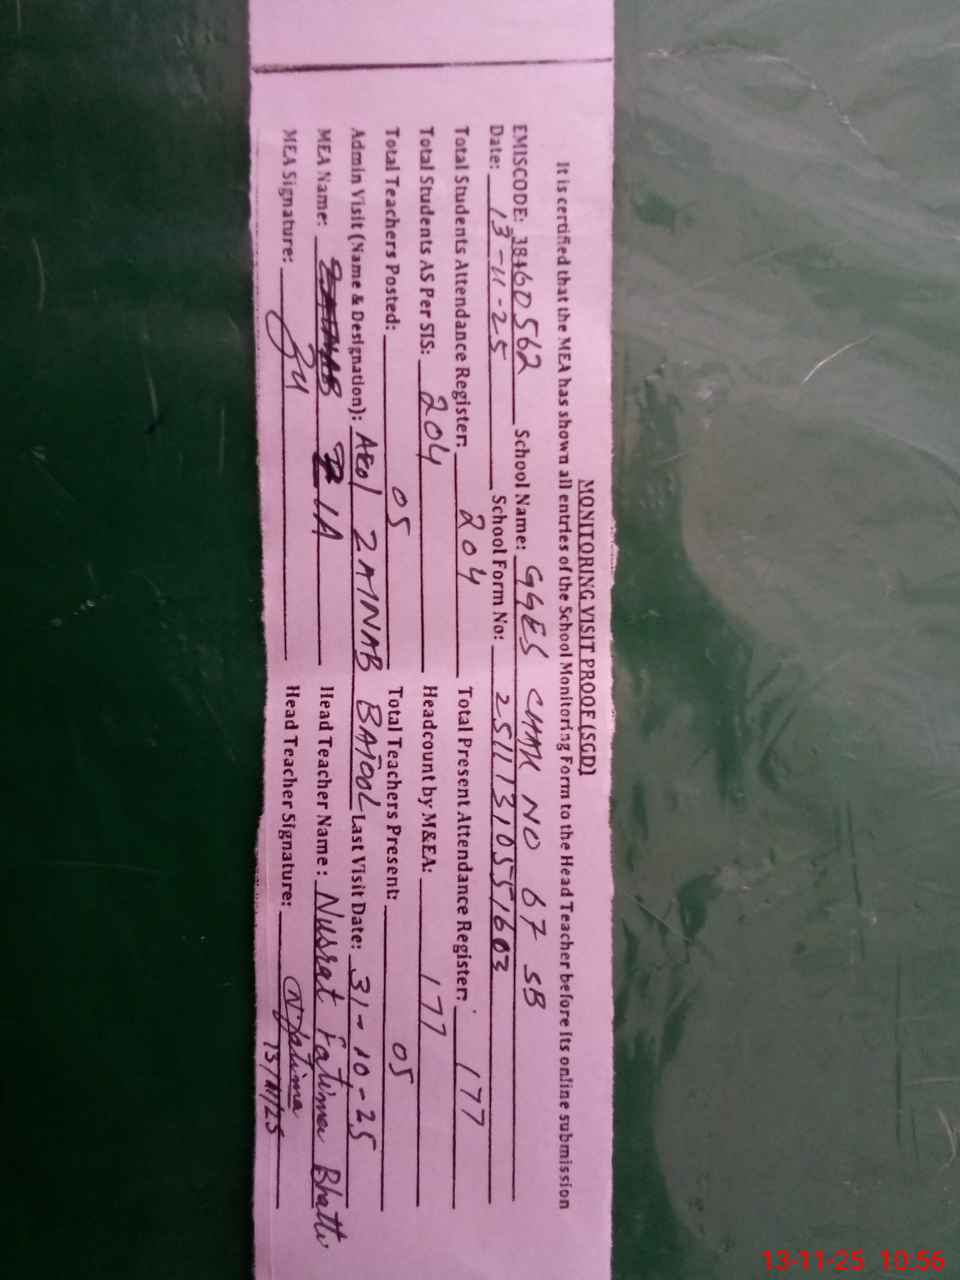 MONITORING VISIT PROOF [SGD]
It is certified that the MEA has shown all entries of the School Monitoring Form to the Head Teacher before its online submission
EMISCODE: 38460562 School Name: GGES CHAK NO 67 SB
Date: 13-11-25 School Form No: 25111310551603
Total Students Attendance Register: 204 Total Present Attendance Register: 177
Total Students AS Per SIS: 204 Headcount by M&EA: 177
Total Teachers Posted: 05 Total Teachers Present: 05
Admin Visit (Name & Designation): ZAINAB BATOOL Last Visit Date: 31-10-25
MEA Name: ZIA Head Teacher Name: Nusrat Fatima Bhatti
MEA Signature: Head Teacher Signature: N.Fatima
13/11/25
13-11-25 10:56